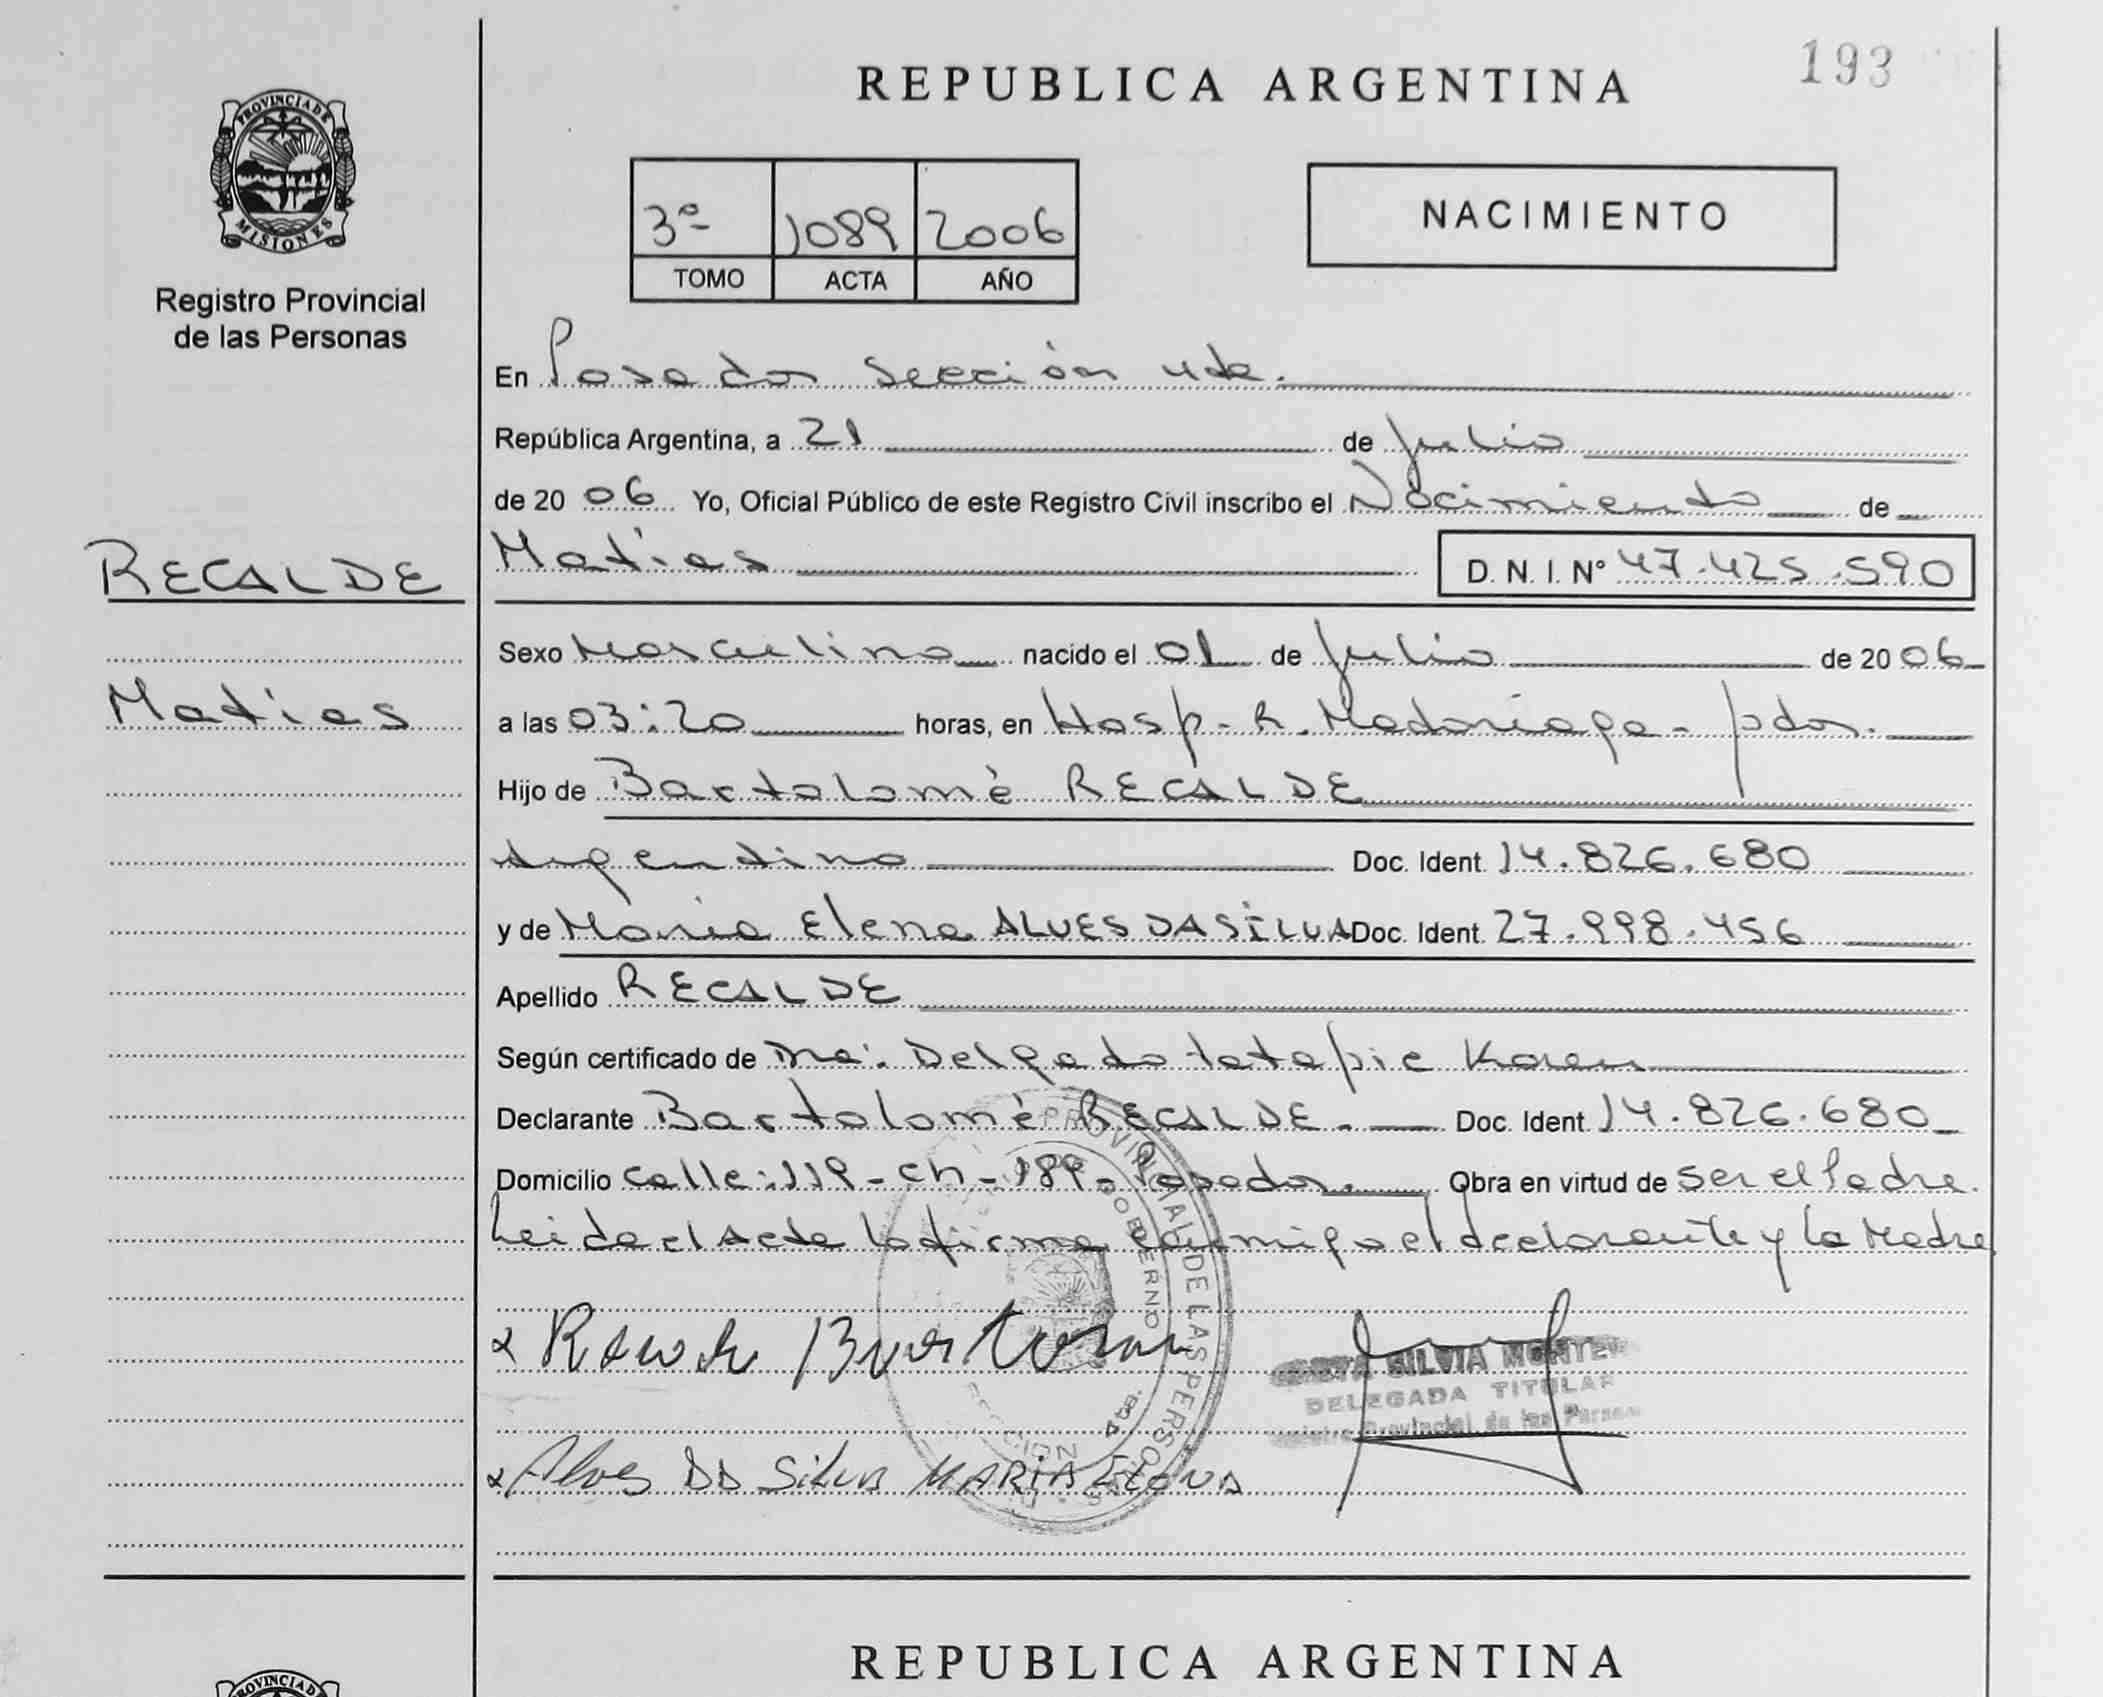 193
REPUBLICA ARGENTINA
PROVINCIA DE
MISIONES
Registro Provincial
de las Personas
3ª 1089 2006
TOMO ACTA AÑO
NACIMIENTO
En Posadas Sección 4ta.
República Argentina, a 21 de Julio
de 2006 Yo, Oficial Público de este Registro Civil inscribo el Nacimiento de
RECALDE
Matías D. N. I. Nº 47.425.590
Sexo Masculino nacido el 01 de Julio de 2006
Matías
a las 03:20 horas, en Hosp. R. Madariaga - pdas.
Hijo de Bartolomé RECALDE
Argentino Doc. Ident. 14.826.680
y de María Elena ALVES DA SILVA Doc. Ident. 27.998.456
Apellido RECALDE
Según certificado de Dra. Delgado Karen
Declarante Bartolomé RECALDE. Doc. Ident. 14.826.680
Domicilio Calle: 119 - Ch - 189 - Posadas. Obra en virtud de ser el Padre.
Leida el Acta la firma conmigo el declarante y la Madre
PROVINCIAL DE LAS PERSONAS
GOBIERNO
SILVIA
DELEGADA TITULAR
Provincial de las
Alves DA Silva MARIA Elena
REPUBLICA ARGENTINA
PROVINCIA DE